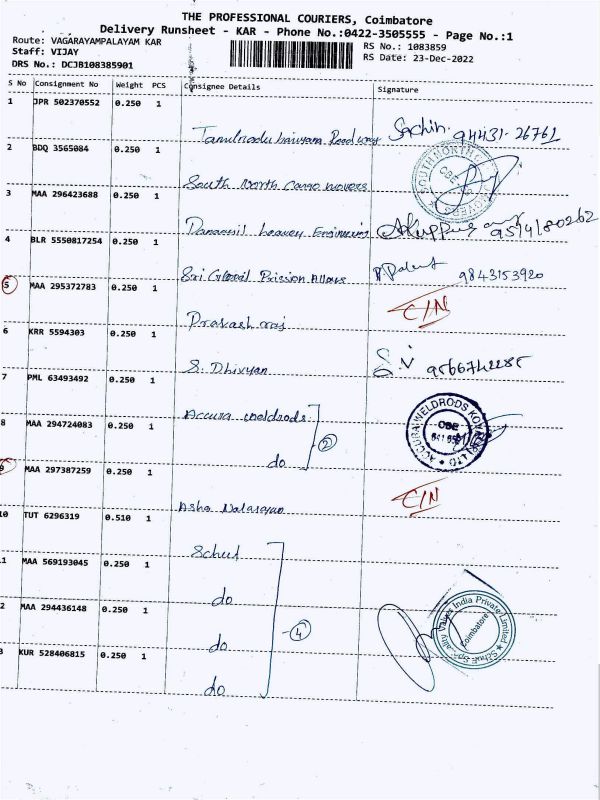 THE PROFESSIONAL COURIERS, Coimbatore
Delivery Runsheet - KAR - Phone No.:0422-3505555 - Page No.:1
Route: VAGARAYAMPALAYAM KAR
RS No.: 1083859
Staff: VIJAY
RS Date: 23-Dec-2022
DRS No.: DCJB108385901
S No Consignment No Weight PCS Consignee Details Signature
1 JPR 502370552 0.250 1
Tamilnadu Roadway Sachin. 94431-26761
2 BDQ 3565084 0.250 1
South North Cargo movers
SOUTH NORTH
3 MAA 296423688 0.250 1
Engineering
4 BLR 5550817254 0.250 1
Sri Global Alloys 9843153920
5 MAA 295372783 0.250 1
Prakash raj C/N
6 KRR 5594303 0.250 1
S. Dhivyan S.V
7 PML 63493492 0.250 1
Accura weldrods
8 MAA 294724083 0.250 1
do 2
ACCURA WELDRODS
9 MAA 297387259 0.250 1
Asha C/N
10 TUT 6296319 0.510 1
Schuf
1 MAA 569193045 0.250 1
do
2 MAA 294436148 0.250 1
do 4
India Private Limited
Coimbatore
KUR 528406815 0.250 1
do